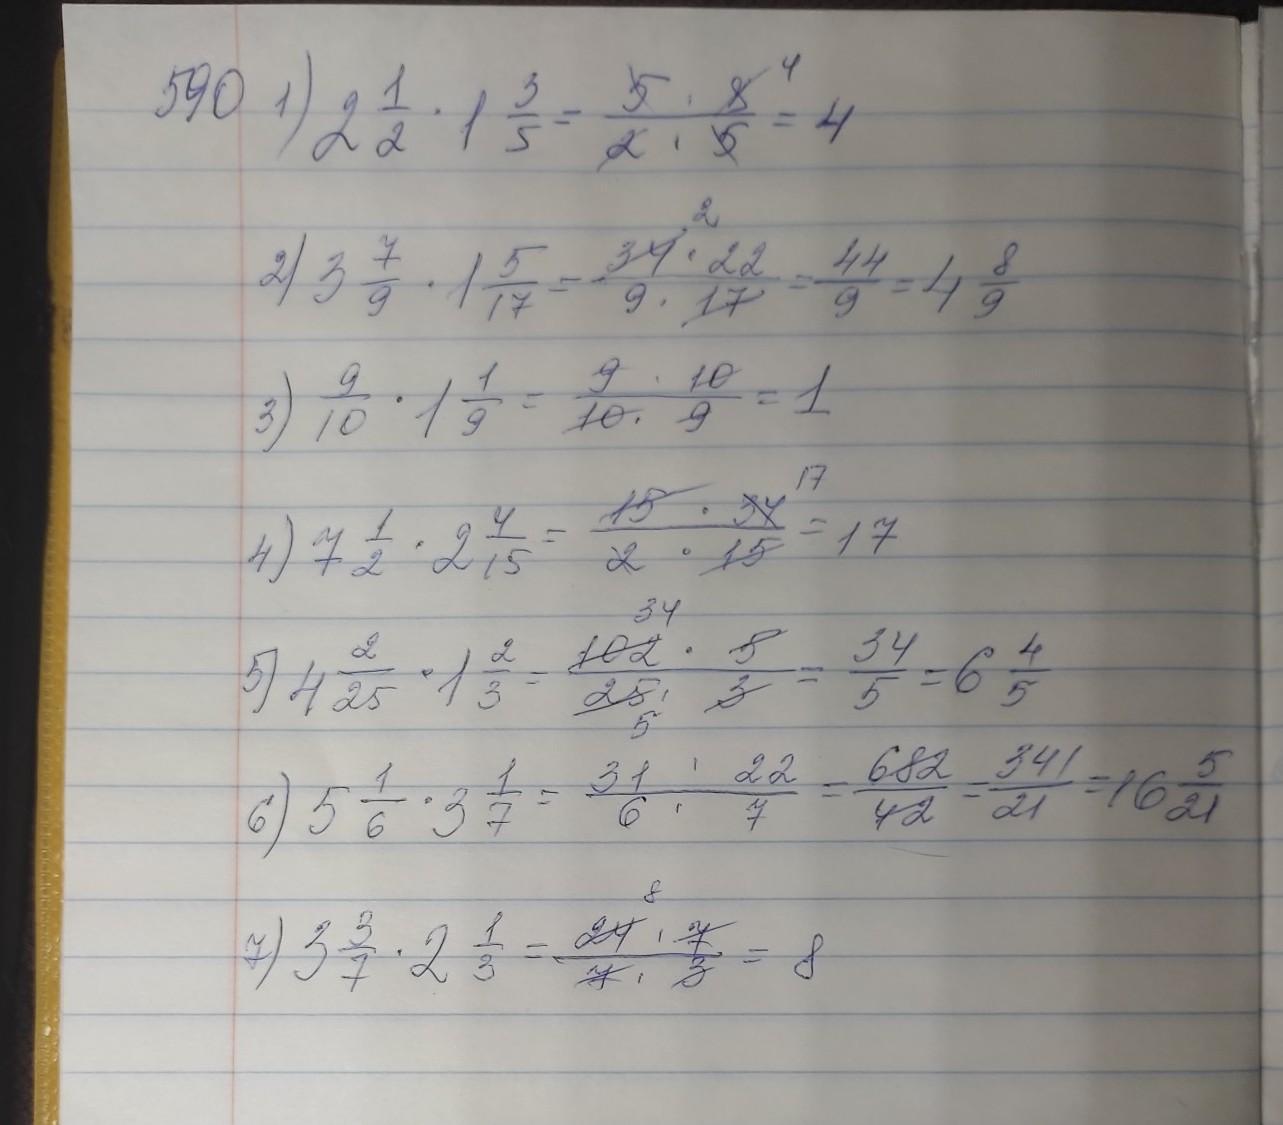 590 1) 2 1/2 · 1 3/5 = 5 · 8 4 / 2 · 5 = 4
2) 3 7/9 · 1 5/17 = 34 2 · 22 / 9 · 17 = 44/9 = 4 8/9
3) 9/10 · 1 1/9 = 9 · 10 / 10 · 9 = 1
4) 7 1/2 · 2 4/15 = 15 · 34 17 / 2 · 15 = 17
5) 4 2/25 · 1 2/3 = 102 34 · 5 / 25 5 · 3 = 34/5 = 6 4/5
6) 5 1/6 · 3 1/7 = 31 · 22 / 6 · 7 = 682/42 = 341/21 = 16 5/21
7) 3 3/7 · 2 1/3 = 24 8 · 7 / 7 · 3 = 8